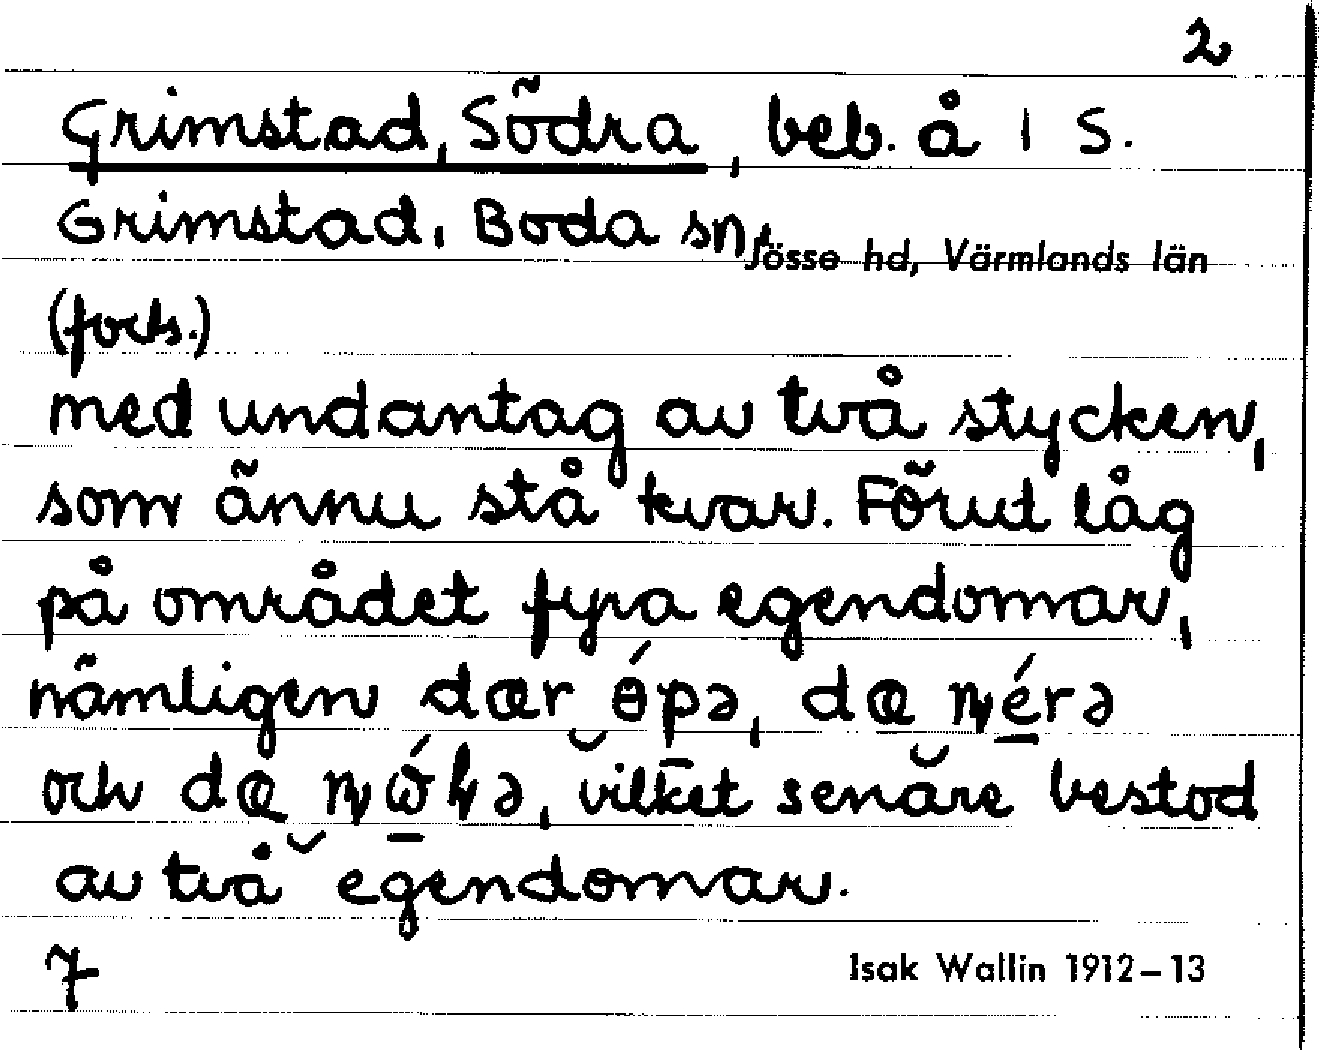 2
Grimstad, Södra, beb. å 1 S.
Grimstad, Boda sn,
Jösse hd, Värmlands län
(forts.)
med undantag av två stycken,
som ännu stå kvar. Förut låg
på området fyra egendomar,
nämligen
och vilket senare bestod
av två egendomar.
7
Isak Wallin 1912–13